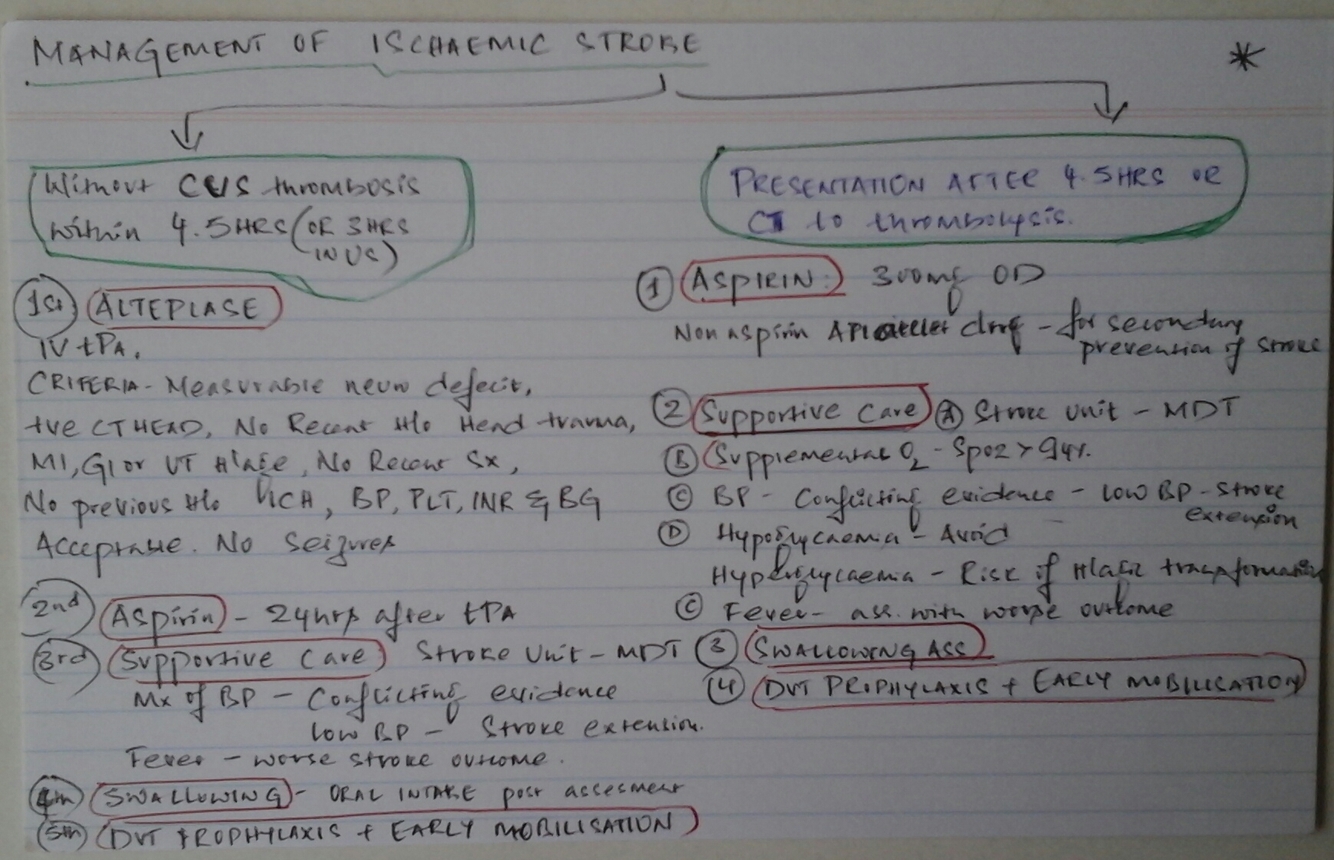 MANAGEMENT OF ISCHAEMIC STROKE
*
Without CVS thrombosis
within 4.5HRS (OR 3HRS
IN US)
1st ALTEPLASE
IV tPA.
CRITERIA - Measurable neuro defecit,
+ve CT HEAD, No Recent H/o Head trauma,
MI, GI or UT Hlage, No Recent Sx,
No previous H/o ICH, BP, PLT, INR & BG
Acceptable. No Seizures
2nd Aspirin - 24hrs after tPA
3rd Supportive Care Stroke Unit - MDT
Mx of BP - Conflicting evidence
low BP - Stroke extension.
Fever - worse stroke outcome.
4th SWALLOWING - ORAL INTAKE post assesment
5th DVT PROPHYLAXIS + EARLY MOBILISATION
PRESENTATION AFTER 4.5HRS OR
CI to thrombolysis.
1 ASPIRIN: 300mg OD
Non aspirin APlatelet drug - for secondary
prevention of stroke
2 Supportive Care A Stroke Unit - MDT
B Supplemental O2 - SpO2 > 94%.
C BP - Conflicting evidence - low BP - stroke
extension
D Hypoglycaemia - Avoid
Hyperglycaemia - Risk of Hlagic transformation
C Fever - ass. with worse outcome
3 SWALLOWING ASS
4 DVT PROPHYLAXIS + EARLY MOBILISATION